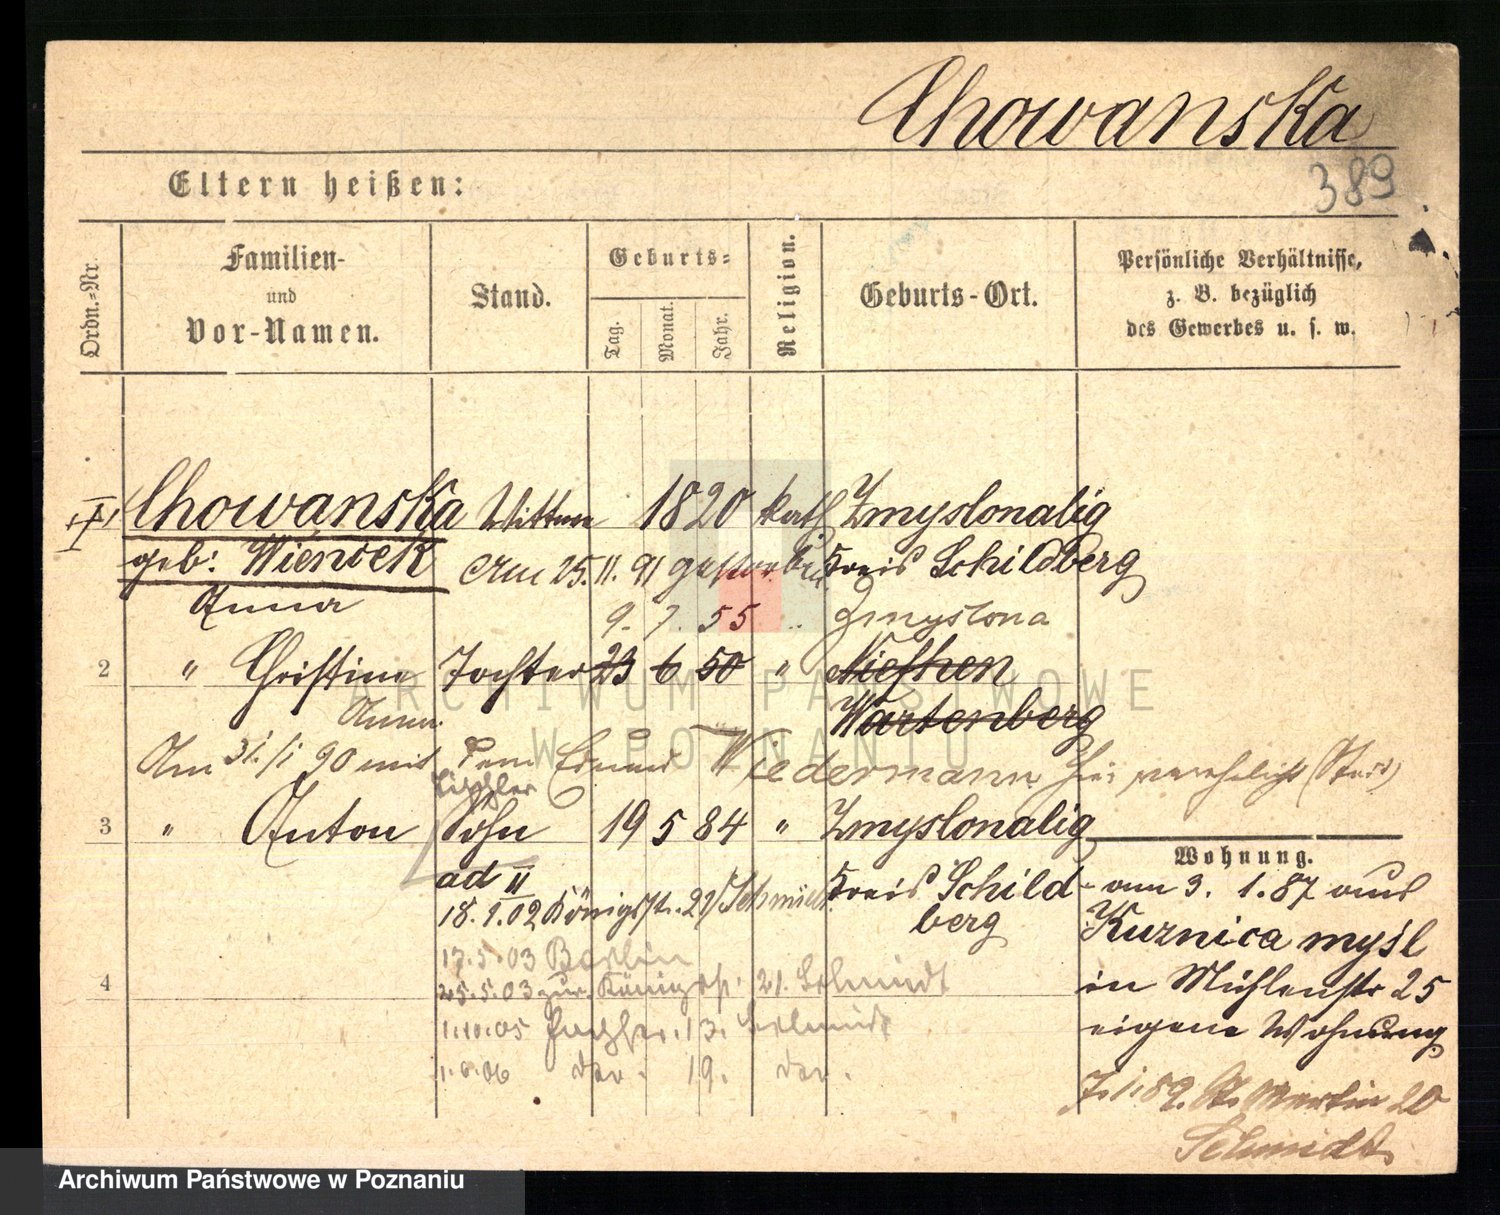 Chowanska
389
Eltern heißen:
Ordn.-Nr.
Familien-
und
Vor-Namen.
Stand.
Geburts-
Tag.
Monat.
Jahr.
Religion.
Geburts-Ort.
Persönliche Verhältnisse,
z. B. bezüglich
des Gewerbes u. s. w.
I Chowanska Wittwe 1820 kath Zmyslonalig
geb: Wieniek Am 25. 11. 91 gestorben Kreis Schildberg
Anna
9. 7. 55 " Zmyslona
2 " Christine Tochter 23 6 50 " Niefken
Anna Wartenberg
Am 31./1 90 mit dem Tischler Wiedermann hier verehelicht
3 " Anton Sohn 19 5 84 " Zmyslonalig
Kreis Schild-
berg
ad II
18. 1. 02 Königstr. 21 Schmidt
17. 5. 03 Berlin
25. 5. 03 zur. Königstr. 21. Schmidt
1. 10. 05 13. Schmidt
1. 6. 06 19.
4
Wohnung.
am 3. 1. 87 aus
Kuznica mysl
in Mühlenstr 25
eigene Wohnung
7. 1. 89. St. Martin 20
Schmidt
ARCHIWUM PAŃSTWOWE
W POZNANIU
Archiwum Państwowe w Poznaniu